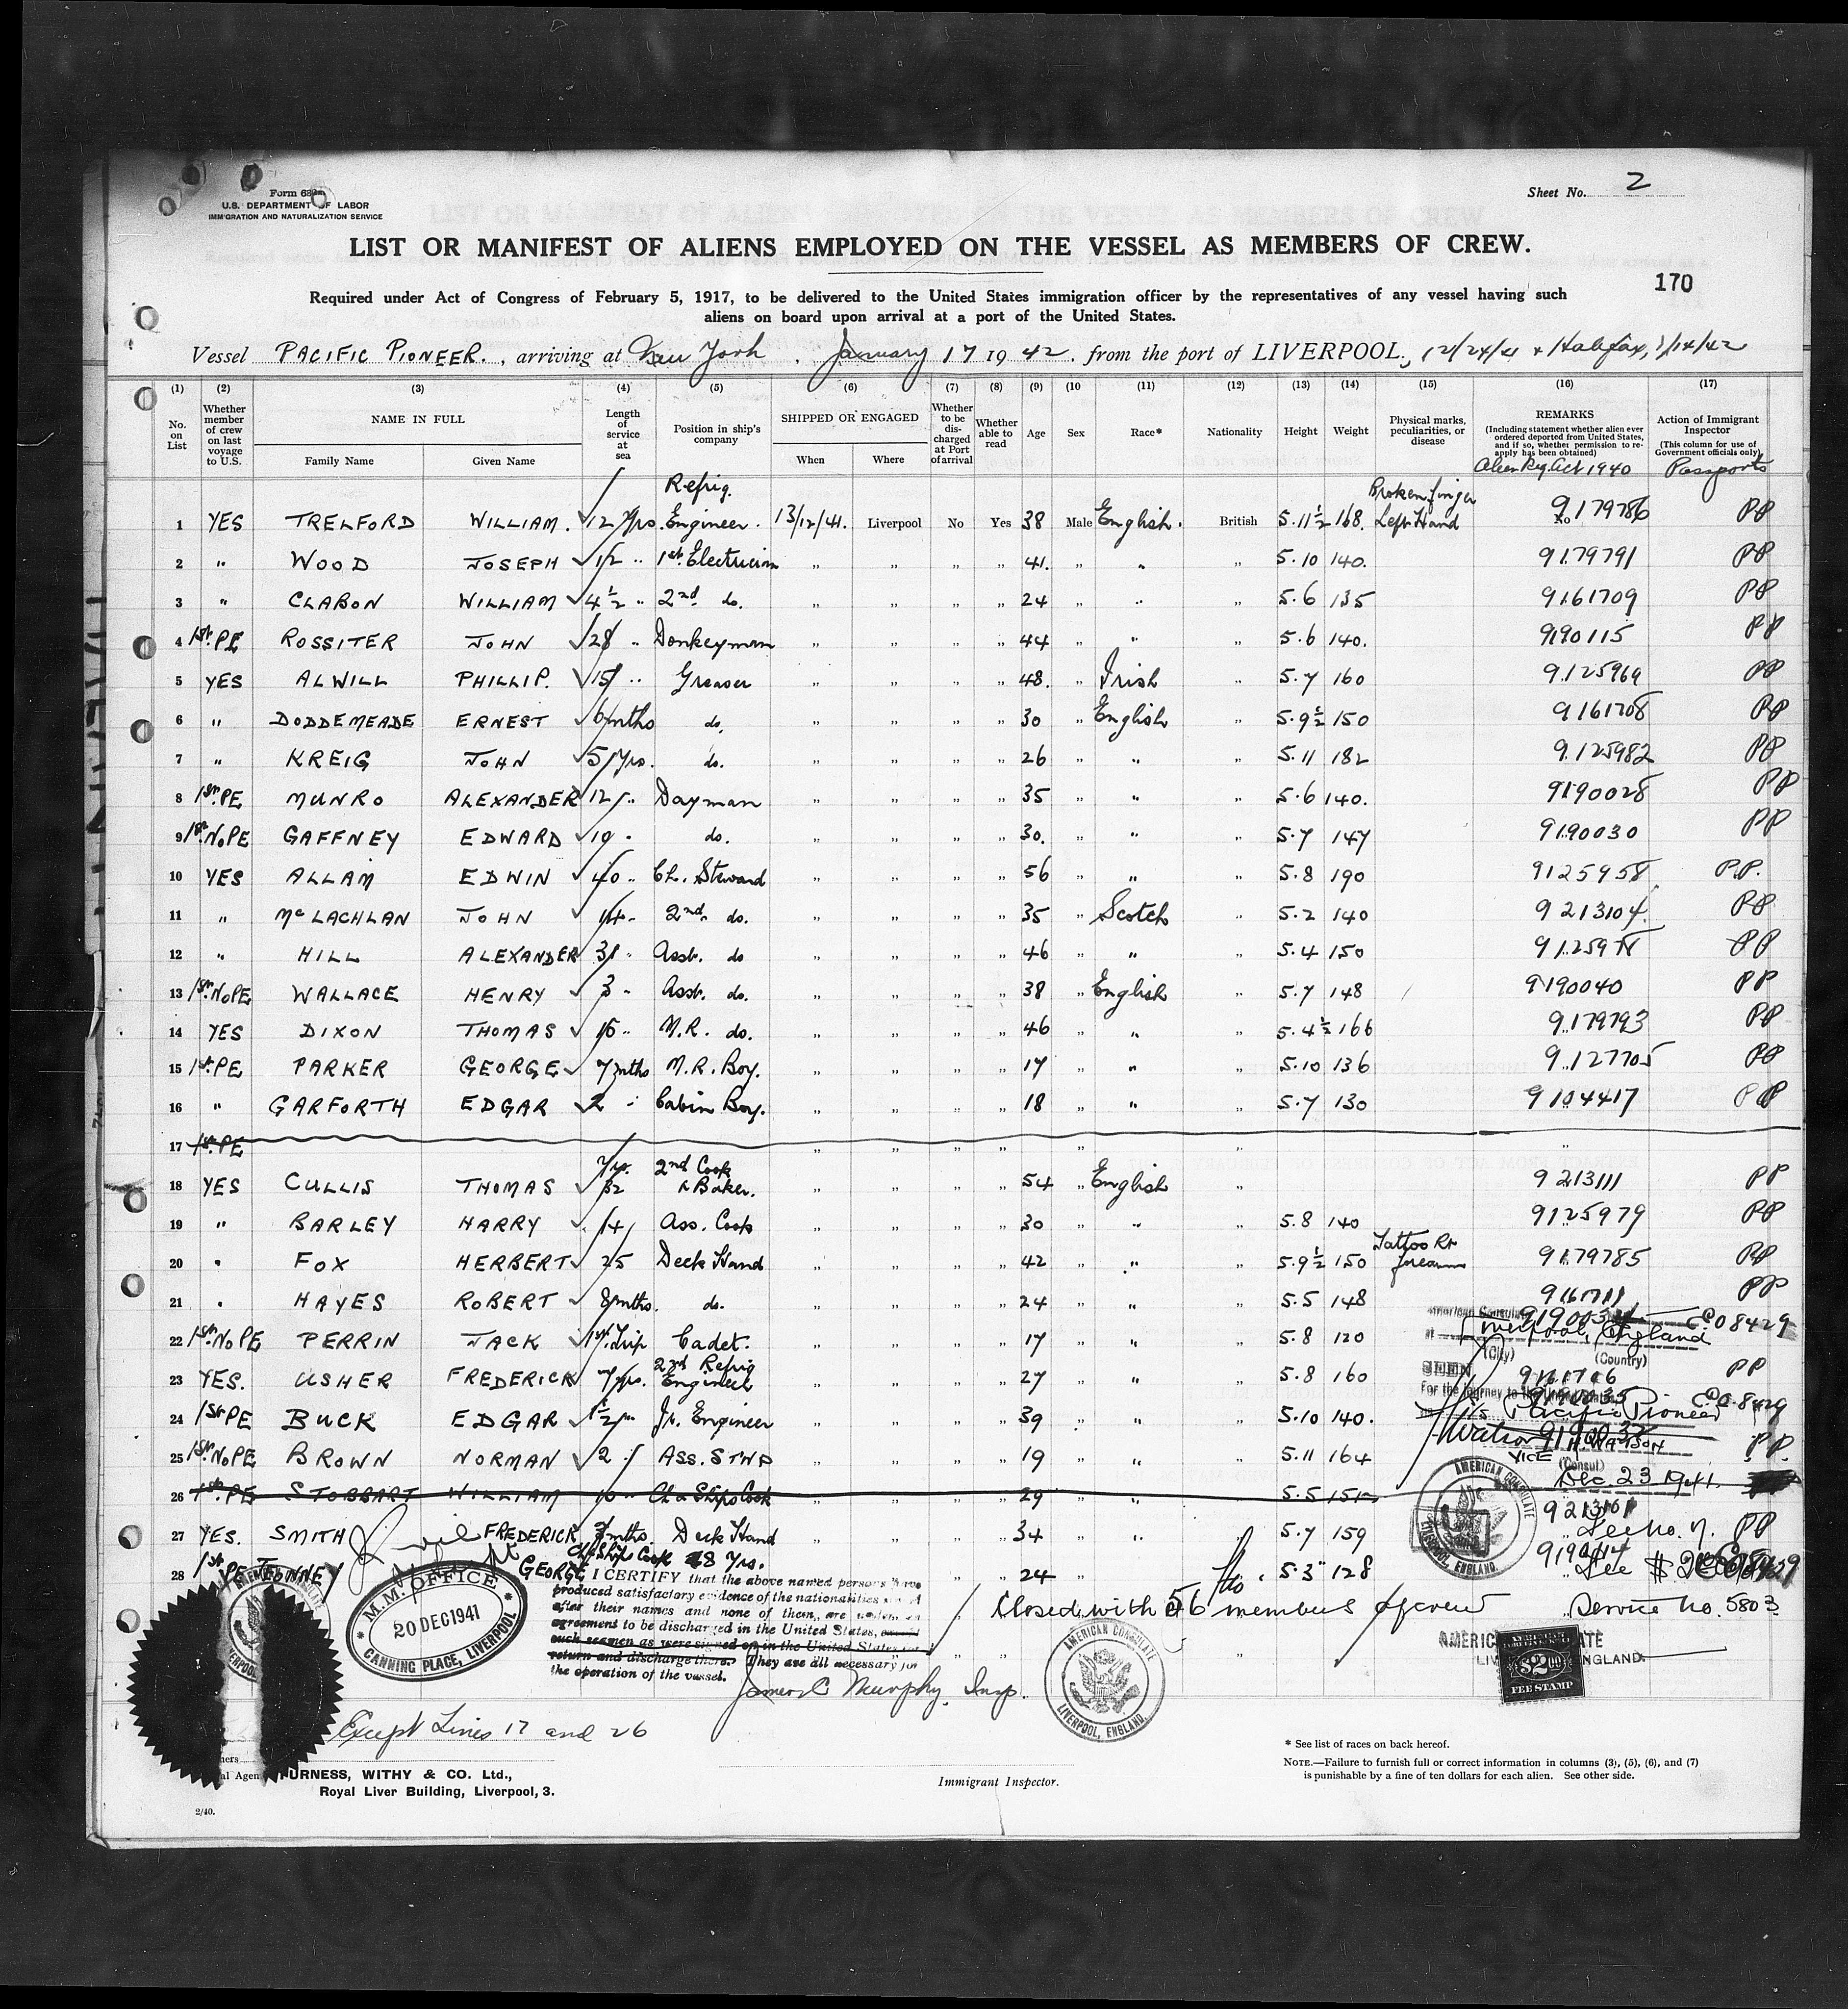 Form 689
U.S. DEPARTMENT OF LABOR
IMMIGRATION AND NATURALIZATION SERVICE
Sheet No. 2
LIST OR MANIFEST OF ALIENS EMPLOYED ON THE VESSEL AS MEMBERS OF CREW.
170
Required under Act of Congress of February 5, 1917, to be delivered to the United States immigration officer by the representatives of any vessel having such
aliens on board upon arrival at a port of the United States.
Vessel PACIFIC PIONEER., arriving at New York, January 17 1942, from the port of LIVERPOOL, 12/24/41 & Halifax, 1/14/42
(1) (2) (3) (4) (5) (6) (7) (8) (9) (10 (11) (12) (13) (14) (15) (16) (17)
No. on List
Whether member of crew on last voyage to U.S.
NAME IN FULL
Family Name Given Name
Length of service at sea
Position in ship's company
SHIPPED OR ENGAGED
When Where
Whether to be discharged at Port of arrival
Whether able to read
Age Sex Race* Nationality Height Weight
Physical marks, peculiarities, or disease
REMARKS
(Including statement whether alien ever ordered deported from United States, and if so, whether permission to re-apply has been obtained)
Alien Reg. Act 1940
Action of Immigrant Inspector
(This column for use of Government officials only)
Passports
1 YES TRELFORD WILLIAM. 12 Yrs. Refrig. Engineer. 13/12/41. Liverpool No Yes 38 Male English. British 5.11½ 168. Broken finger Left Hand No 9179786 PP
2 " WOOD JOSEPH 1/2 " 1st Electrician " " " " 41. " " " 5.10 140. 9179791 PP
3 " CLABON WILLIAM 4½ " 2nd do. " " " " 24 " " " 5.6 135 9161709 PP
4 1st. PE ROSSITER JOHN 28 " Donkeyman " " " " 44 " " " 5.6 140. 9190115 PP
5 YES ALWILL PHILLIP. 15 " Greaser " " " " 48. " Irish " 5.7 160 9125969 PP
6 " DODDEMEADE ERNEST 6 mths do. " " " " 30 " English " 5.9½ 150 9161708 PP
7 " KREIG JOHN 5 Yrs. do. " " " " 26 " " " 5.11 182 9125982 PP
8 1st. PE MUNRO ALEXANDER 12 " Dayman " " " " 35 " " " 5.6 140. 9190028 PP
9 1st. No PE GAFFNEY EDWARD 10 " do. " " " " 30. " " " 5.7 147 9190030 PP
10 YES ALLAM EDWIN 40 " Ch. Steward " " " " 56 " " " 5.8 190 9125958 P.P.
11 " McLACHLAN JOHN 14 " 2nd. do. " " " " 35 " Scotch " 5.2 140 9213104. PP
12 " HILL ALEXANDER 31 " Asst. do " " " " 46 " " " 5.4 150 PP
13 1st. No PE WALLACE HENRY 3 " Asst. do. " " " " 38 " English " 5.7 148 9190040 PP
14 YES DIXON THOMAS 15 " M.R. do. " " " " 46 " " " 5.4½ 166 9179793 PP
15 1st. PE PARKER GEORGE 7 mths M.R. Boy. " " " " 17 " " " 5.10 136 9127705 PP
16 " GARFORTH EDGAR 2 " Cabin Boy. " " " " 18 " " " 5.7 130 9104417 PP
17 1st. PE " " " " " " "
18 YES CULLIS THOMAS Yrs. 32 2nd Cook & Baker. " " " " 54 " English " 9213111 PP
19 " BARLEY HARRY 14 Ass. Cook " " " " 30 " " " 5.8 140 9125979 PP
20 " FOX HERBERT 25 Deck Hand " " " " 42 " " " 5.9½ 150 Tattoo Rt forearm 9179785 PP
21 " HAYES ROBERT 8 mths. do. " " " " 24 " " " 5.5 148 9161711 PP
22 1st. No PE PERRIN JACK 1st. Trip Cadet. " " " " 17 " " " 5.8 120 C.08429
23 YES. USHER FREDERICK 7 yrs. 2nd Refrig Engineer " " " " 27 " " " 5.8 160 PP
24 1st PE BUCK EDGAR Jr. Engineer " " " " 39 " " " 5.10 140. 9190035 C.08429
25 1st. No PE BROWN NORMAN 2 " ASS. STWD " " " " 19 " " " 5.11 164 PP.
26 1st. PE STOBBART WILLIAM 10 " Ch & Ships Cook " " " " 29 " " " 5.5 151
27 YES. SMITH FREDERICK 7 mths. Deck Hand " " " " 34 " " " 5.7 159 9213101 PP
28 1st PE GEORGE Ch. Ships Cook 8 Yrs. " " 24 " " " 5.3 128
American Consulate
at Liverpool, England
(City) (Country)
SEEN
For the journey to the United States
M/S Pacific Pioneer
H. Watson
VICE (Consul)
Dec. 23 1941
Fee No. 7.
Fee $
Service No. 5803
AMERICAN CONSULATE LIVERPOOL, ENGLAND.
M.M. OFFICE
20 DEC 1941
* CANNING PLACE, LIVERPOOL *
I CERTIFY that the above named persons have
produced satisfactory evidence of the nationalities
after their names and none of them, are under an
agreement to be discharged in the United States, except
such seamen as were signed on in the United States for
return and discharge there. They are all necessary for
the operation of the vessel.
Closed with 56 members of crew
James C Murphy, Insp.
AMERICAN CONSULATE
LIVERPOOL, ENGLAND.
AMERICAN CONSULATE
LIVERPOOL, ENGLAND.
$2.00
FEE STAMP
Except Lines 17 and 26
FURNESS, WITHY & CO. Ltd.,
Royal Liver Building, Liverpool, 3.
Immigrant Inspector.
* See list of races on back hereof.
NOTE.—Failure to furnish full or correct information in columns (3), (5), (6), and (7)
is punishable by a fine of ten dollars for each alien. See other side.
2/40.